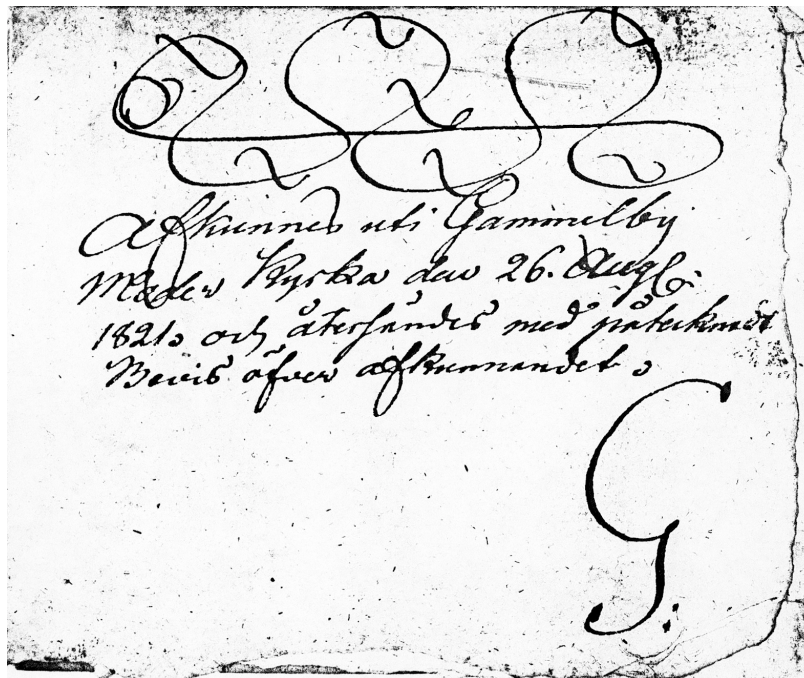 Afkunnes uti Gammelby
Moder Kyrka den 26. Augl:
1821. och återsändes med påtecknadt
Bevis öfver afkunnandet.
G: